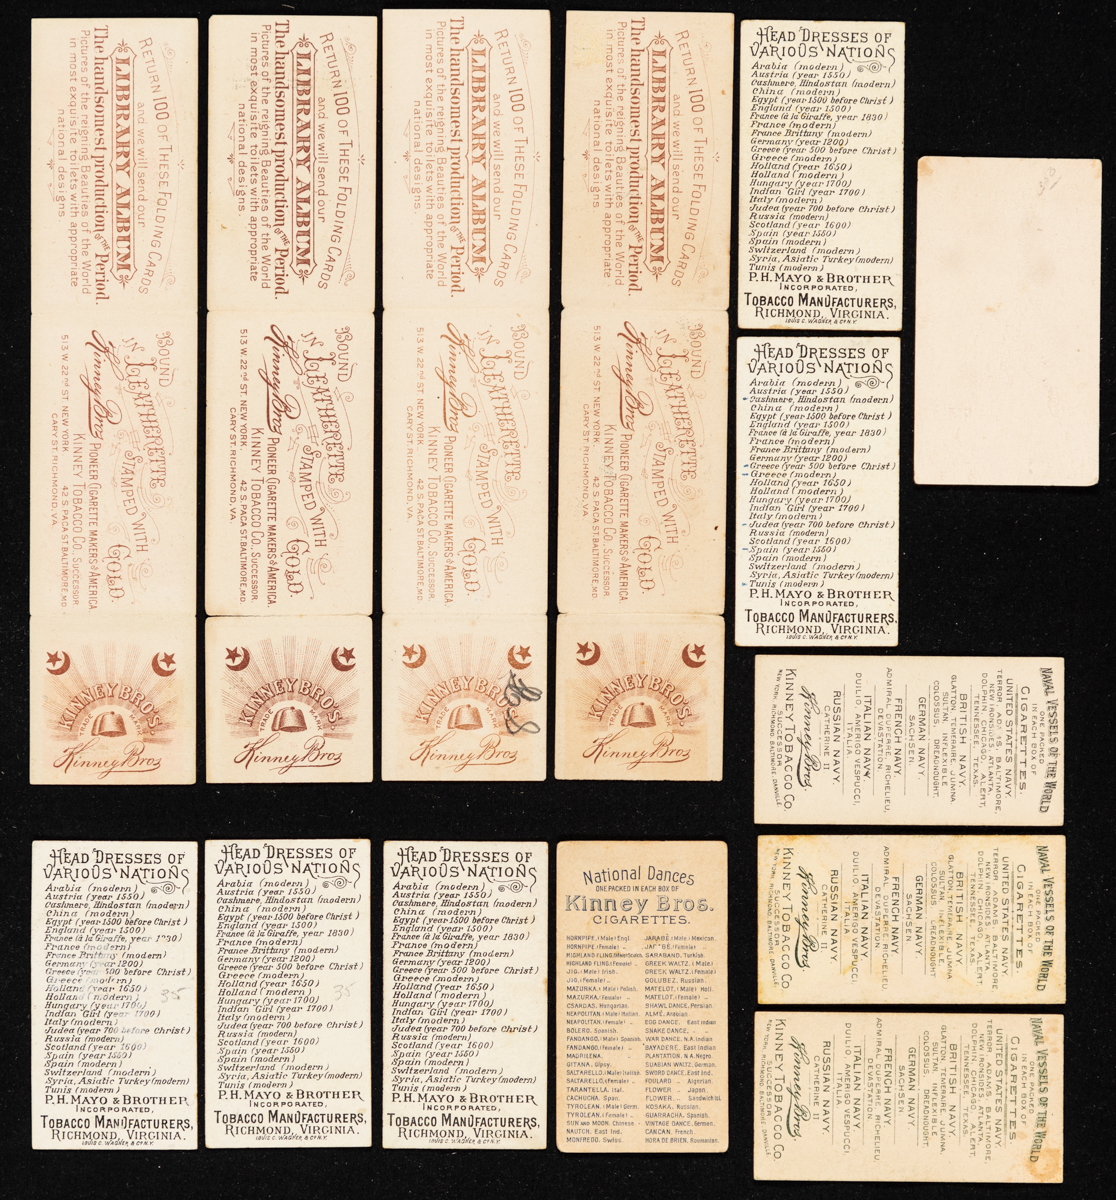 RETURN 100 OF THESE FOLDING CARDS
and we will send our
LIBRARY ALBUM
The handsomest production OF THE Period.
Pictures of the reigning Beauties of the World
in most exquisite toilets with appropriate
national designs.
BOUND
IN LEATHERETTE
STAMPED WITH
GOLD.
Kinney Bros. PIONEER CIGARETTE MAKERS OF AMERICA
KINNEY TOBACCO CO. SUCCESSOR
513 W. 22nd ST. NEW YORK 42 S. PACA ST. BALTIMORE, MD.
CARY ST. RICHMOND, VA.
KINNEY BROS
TRADE MARK
Kinney Bros
RETURN 100 OF THESE FOLDING CARDS
and we will send our
LIBRARY ALBUM
The handsomest production OF THE Period.
Pictures of the reigning Beauties of the World
in most exquisite toilets with appropriate
national designs.
BOUND
IN LEATHERETTE
STAMPED WITH
GOLD.
Kinney Bros. PIONEER CIGARETTE MAKERS OF AMERICA
KINNEY TOBACCO CO. SUCCESSOR
513 W. 22nd ST. NEW YORK 42 S. PACA ST. BALTIMORE, MD.
CARY ST. RICHMOND, VA.
KINNEY BROS
TRADE MARK
Kinney Bros
RETURN 100 OF THESE FOLDING CARDS
and we will send our
LIBRARY ALBUM
The handsomest production OF THE Period.
Pictures of the reigning Beauties of the World
in most exquisite toilets with appropriate
national designs.
BOUND
IN LEATHERETTE
STAMPED WITH
GOLD.
Kinney Bros. PIONEER CIGARETTE MAKERS OF AMERICA
KINNEY TOBACCO CO. SUCCESSOR
513 W. 22nd ST. NEW YORK 42 S. PACA ST. BALTIMORE, MD.
CARY ST. RICHMOND, VA.
KINNEY BROS
TRADE MARK
Kinney Bros
RETURN 100 OF THESE FOLDING CARDS
and we will send our
LIBRARY ALBUM
The handsomest production OF THE Period.
Pictures of the reigning Beauties of the World
in most exquisite toilets with appropriate
national designs.
BOUND
IN LEATHERETTE
STAMPED WITH
GOLD.
Kinney Bros. PIONEER CIGARETTE MAKERS OF AMERICA
KINNEY TOBACCO CO. SUCCESSOR
513 W. 22nd ST. NEW YORK 42 S. PACA ST. BALTIMORE, MD.
CARY ST. RICHMOND, VA.
KINNEY BROS
TRADE MARK
Kinney Bros
HEAD DRESSES OF
VARIOUS NATIONS
Arabia (modern)
Austria (year 1550)
Cashmere, Hindostan (modern)
China (modern)
Egypt (year 1500 before Christ)
England (year 1500)
France (à la Giraffe, year 1830)
France (modern)
France Brittany (modern)
Germany (year 1200)
Greece (year 500 before Christ)
Greece (modern)
Holland (year 1650)
Holland (modern)
Hungary (year 1700)
Indian Girl (year 1700)
Italy (modern)
Judea (year 700 before Christ)
Russia (modern)
Scotland (year 1600)
Spain (year 1550)
Spain (modern)
Switzerland (modern)
Syria, Asiatic Turkey (modern)
Tunis (modern)
P. H. MAYO & BROTHER
INCORPORATED,
TOBACCO MANUFACTURERS,
RICHMOND, VIRGINIA.
LOUIS C. WAGNER & CO. N.Y.
HEAD DRESSES OF
VARIOUS NATIONS
Arabia (modern)
Austria (year 1550)
Cashmere, Hindostan (modern)
China (modern)
Egypt (year 1500 before Christ)
England (year 1500)
France (à la Giraffe, year 1830)
France (modern)
France Brittany (modern)
Germany (year 1200)
Greece (year 500 before Christ)
Greece (modern)
Holland (year 1650)
Holland (modern)
Hungary (year 1700)
Indian Girl (year 1700)
Italy (modern)
Judea (year 700 before Christ)
Russia (modern)
Scotland (year 1600)
Spain (year 1550)
Spain (modern)
Switzerland (modern)
Syria, Asiatic Turkey (modern)
Tunis (modern)
P. H. MAYO & BROTHER
INCORPORATED,
TOBACCO MANUFACTURERS,
RICHMOND, VIRGINIA.
LOUIS C. WAGNER & CO. N.Y.
NAVAL VESSELS OF THE WORLD
ONE PACKED
IN EACH BOX OF
CIGARETTES.
UNITED STATES NAVY.
TERROR, ADAMS, BALTIMORE,
NEW IRONSIDES, ATLANTA,
DOLPHIN, CHICAGO, ALERT,
TENNESSEE, TEXAS.
BRITISH NAVY.
GLATTON, TEMERAIRE, JUMNA,
SULTAN, INFLEXIBLE
COLOSSUS, DREADNOUGHT,
GERMAN NAVY.
SACHSEN.
FRENCH NAVY.
ADMIRAL DUPERRE, RICHELIEU,
DEVASTATION.
ITALIAN NAVY.
DUILIO, AMERIGO VESPUCCI,
ITALIA
RUSSIAN NAVY.
CATHERINE II
Kinney Bros.
KINNEY TOBACCO CO.
SUCCESSOR
NEW YORK, RICHMOND, BALTIMORE, DANVILLE.
NAVAL VESSELS OF THE WORLD
ONE PACKED
IN EACH BOX OF
CIGARETTES.
UNITED STATES NAVY.
TERROR, ADAMS, BALTIMORE,
NEW IRONSIDES, ATLANTA,
DOLPHIN, CHICAGO, ALERT,
TENNESSEE, TEXAS.
BRITISH NAVY.
GLATTON, TEMERAIRE, JUMNA,
SULTAN, INFLEXIBLE
COLOSSUS, DREADNOUGHT
GERMAN NAVY.
SACHSEN.
FRENCH NAVY.
ADMIRAL DUPERRE, RICHELIEU,
DEVASTATION.
ITALIAN NAVY.
DUILIO, AMERIGO VESPUCCI,
ITALIA
RUSSIAN NAVY.
CATHERINE II.
Kinney Bros
KINNEY TOBACCO CO
SUCCESSOR
NEW YORK, RICHMOND, BALTIMORE, DANVILLE
NAVAL VESSELS OF THE WORLD
ONE PACKED
IN EACH BOX OF
CIGARETTES.
UNITED STATES NAVY.
TERROR, ADAMS, BALTIMORE,
NEW IRONSIDES, ATLANTA
DOLPHIN, CHICAGO, ALERT,
TENNESSEE, TEXAS.
BRITISH NAVY.
GLATTON, TEMERAIRE, JUMNA,
SULTAN, INFLEXIBLE
COLOSSUS, DREADNOUGHT.
GERMAN NAVY.
SACHSEN.
FRENCH NAVY.
ADMIRAL DUPERRE, RICHELIEU
DEVASTATION.
ITALIAN NAVY.
DUILIO, AMERIGO VESPUCCI
ITALIA
RUSSIAN NAVY.
CATHERINE II
Kinney Bros.
KINNEY TOBACCO CO.
SUCCESSOR
NEW YORK, RICHMOND, BALTIMORE, DANVILLE
HEAD DRESSES OF
VARIOUS NATIONS
Arabia (modern)
Austria (year 1550)
Cashmere, Hindostan (modern)
China (modern)
Egypt (year 1500 before Christ)
England (year 1500)
France (à la Giraffe, year 1830)
France (modern)
France Brittany (modern)
Germany (year 1200)
Greece (year 500 before Christ)
Greece (modern)
Holland (year 1650)
Holland (modern) 35
Hungary (year 1700)
Indian Girl (year 1700)
Italy (modern)
Judea (year 700 before Christ)
Russia (modern)
Scotland (year 1600)
Spain (year 1550)
Spain (modern)
Switzerland (modern)
Syria, Asiatic Turkey (modern)
Tunis (modern)
P. H. MAYO & BROTHER
INCORPORATED,
TOBACCO MANUFACTURERS,
RICHMOND, VIRGINIA.
LOUIS C. WAGNER & CO. N.Y.
HEAD DRESSES OF
VARIOUS NATIONS
Arabia (modern)
Austria (year 1550)
Cashmere, Hindostan (modern)
China (modern)
Egypt (year 1500 before Christ)
England (year 1500)
France (à la Giraffe, year 1830)
France (modern)
France Brittany (modern)
Germany (year 1200)
Greece (year 500 before Christ)
Greece (modern)
Holland (year 1650)
Holland (modern) 35
Hungary (year 1700)
Indian Girl (year 1700)
Italy (modern)
Judea (year 700 before Christ)
Russia (modern)
Scotland (year 1600)
Spain (year 1550)
Spain (modern)
Switzerland (modern)
Syria, Asiatic Turkey (modern)
Tunis (modern)
P. H. MAYO & BROTHER
INCORPORATED,
TOBACCO MANUFACTURERS,
RICHMOND, VIRGINIA.
LOUIS C. WAGNER & CO. N.Y.
HEAD DRESSES OF
VARIOUS NATIONS
Arabia (modern)
Austria (year 1550)
Cashmere, Hindostan (modern)
China (modern)
Egypt (year 1500 before Christ)
England (year 1500)
France (à la Giraffe, year 1830)
France (modern)
France Brittany (modern)
Germany (year 1200)
Greece (year 500 before Christ)
Greece (modern)
Holland (year 1650)
Holland (modern)
Hungary (year 1700)
Indian Girl (year 1700)
Italy (modern)
Judea (year 700 before Christ)
Russia (modern)
Scotland (year 1600)
Spain (year 1550)
Spain (modern)
Switzerland (modern)
Syria, Asiatic Turkey (modern)
Tunis (modern)
P. H. MAYO & BROTHER
INCORPORATED,
TOBACCO MANUFACTURERS,
RICHMOND, VIRGINIA.
LOUIS C. WAGNER & CO. N.Y.
National Dances
ONE PACKED IN EACH BOX OF
Kinney Bros.
CIGARETTES.
HORNPIPE, (Male) Engl.
HORNPIPE (Female) „
HIGHLAND FLING, (Male) Scotch.
HIGHLAND FLING, (Female) „
JIG, (Male) Irish.
JIG, (Female) „
MAZURKA, (Male) Polish.
MAZURKA, (Female) „
CSARDAS, Hungarian.
NEAPOLITAN, (Male) Italian.
NEAPOLITAN, (Female) „
BOLERO, Spanish.
FANDANGO, (Male) Spanish.
FANDANGO, (Female) „
MADRILENA, „
GITANA, Gipsy.
SALTARELLO, (Male) Italian.
SALTARELLO, (Female) „
TARANTELLA, Ital.
CACHUCHA, Span.
TYROLEAN, (Male) Germ.
TYROLEAN, (Female) „
SUN AND MOON, Chinese.
NAUTCH, East Ind.
MONFREDO, Swiss.
JARABÉ, (Male) Mexican.
JARABÉ, (Female) „
SARABAND, Turkish.
GREEK WALTZ, (Male)
GREEK WALTZ, (Female)
GOLUBEZ, Russian.
MATELOT, (Male) Holl.
MATELOT, (Female) „
SHAWL DANCE, Persian
ALMÉ, Arabian.
EGG DANCE, East Indian
SNAKE DANCE, „
WAR DANCE, N.A. Indian
BAYADERE, East Indian
PLANTATION, N.A. Negro.
SUABIAN WALTZ, German.
SWORD DANCE, East Ind.
FOULARD „ Algerian.
FLOWER „ Japan.
FLOWER „ Sandwich Isl.
KOSAKA, Russian.
GUARRACHA, Spanish.
VINTAGE DANCE, German.
CANCAN, French.
HORA DE BRIEN, Roumanian.